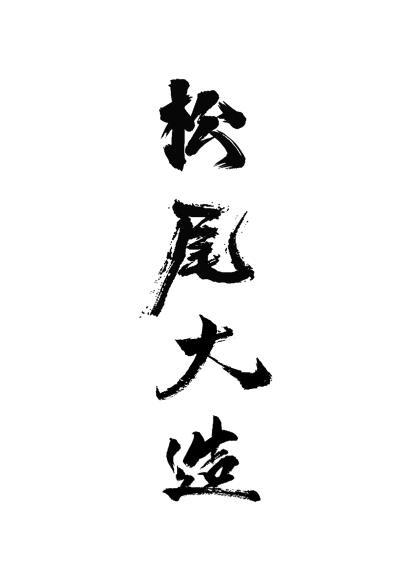 松尾大造